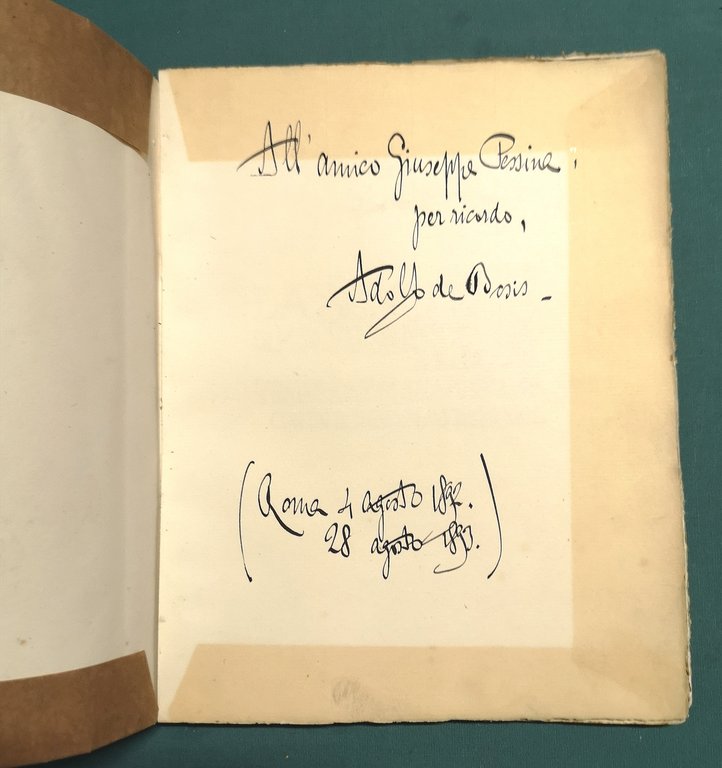 All' amico Giuseppe Pessina,
per ricordo,
Adolfo de Bosis –
(Roma 4 agosto 1892.
28 agosto 1893.)